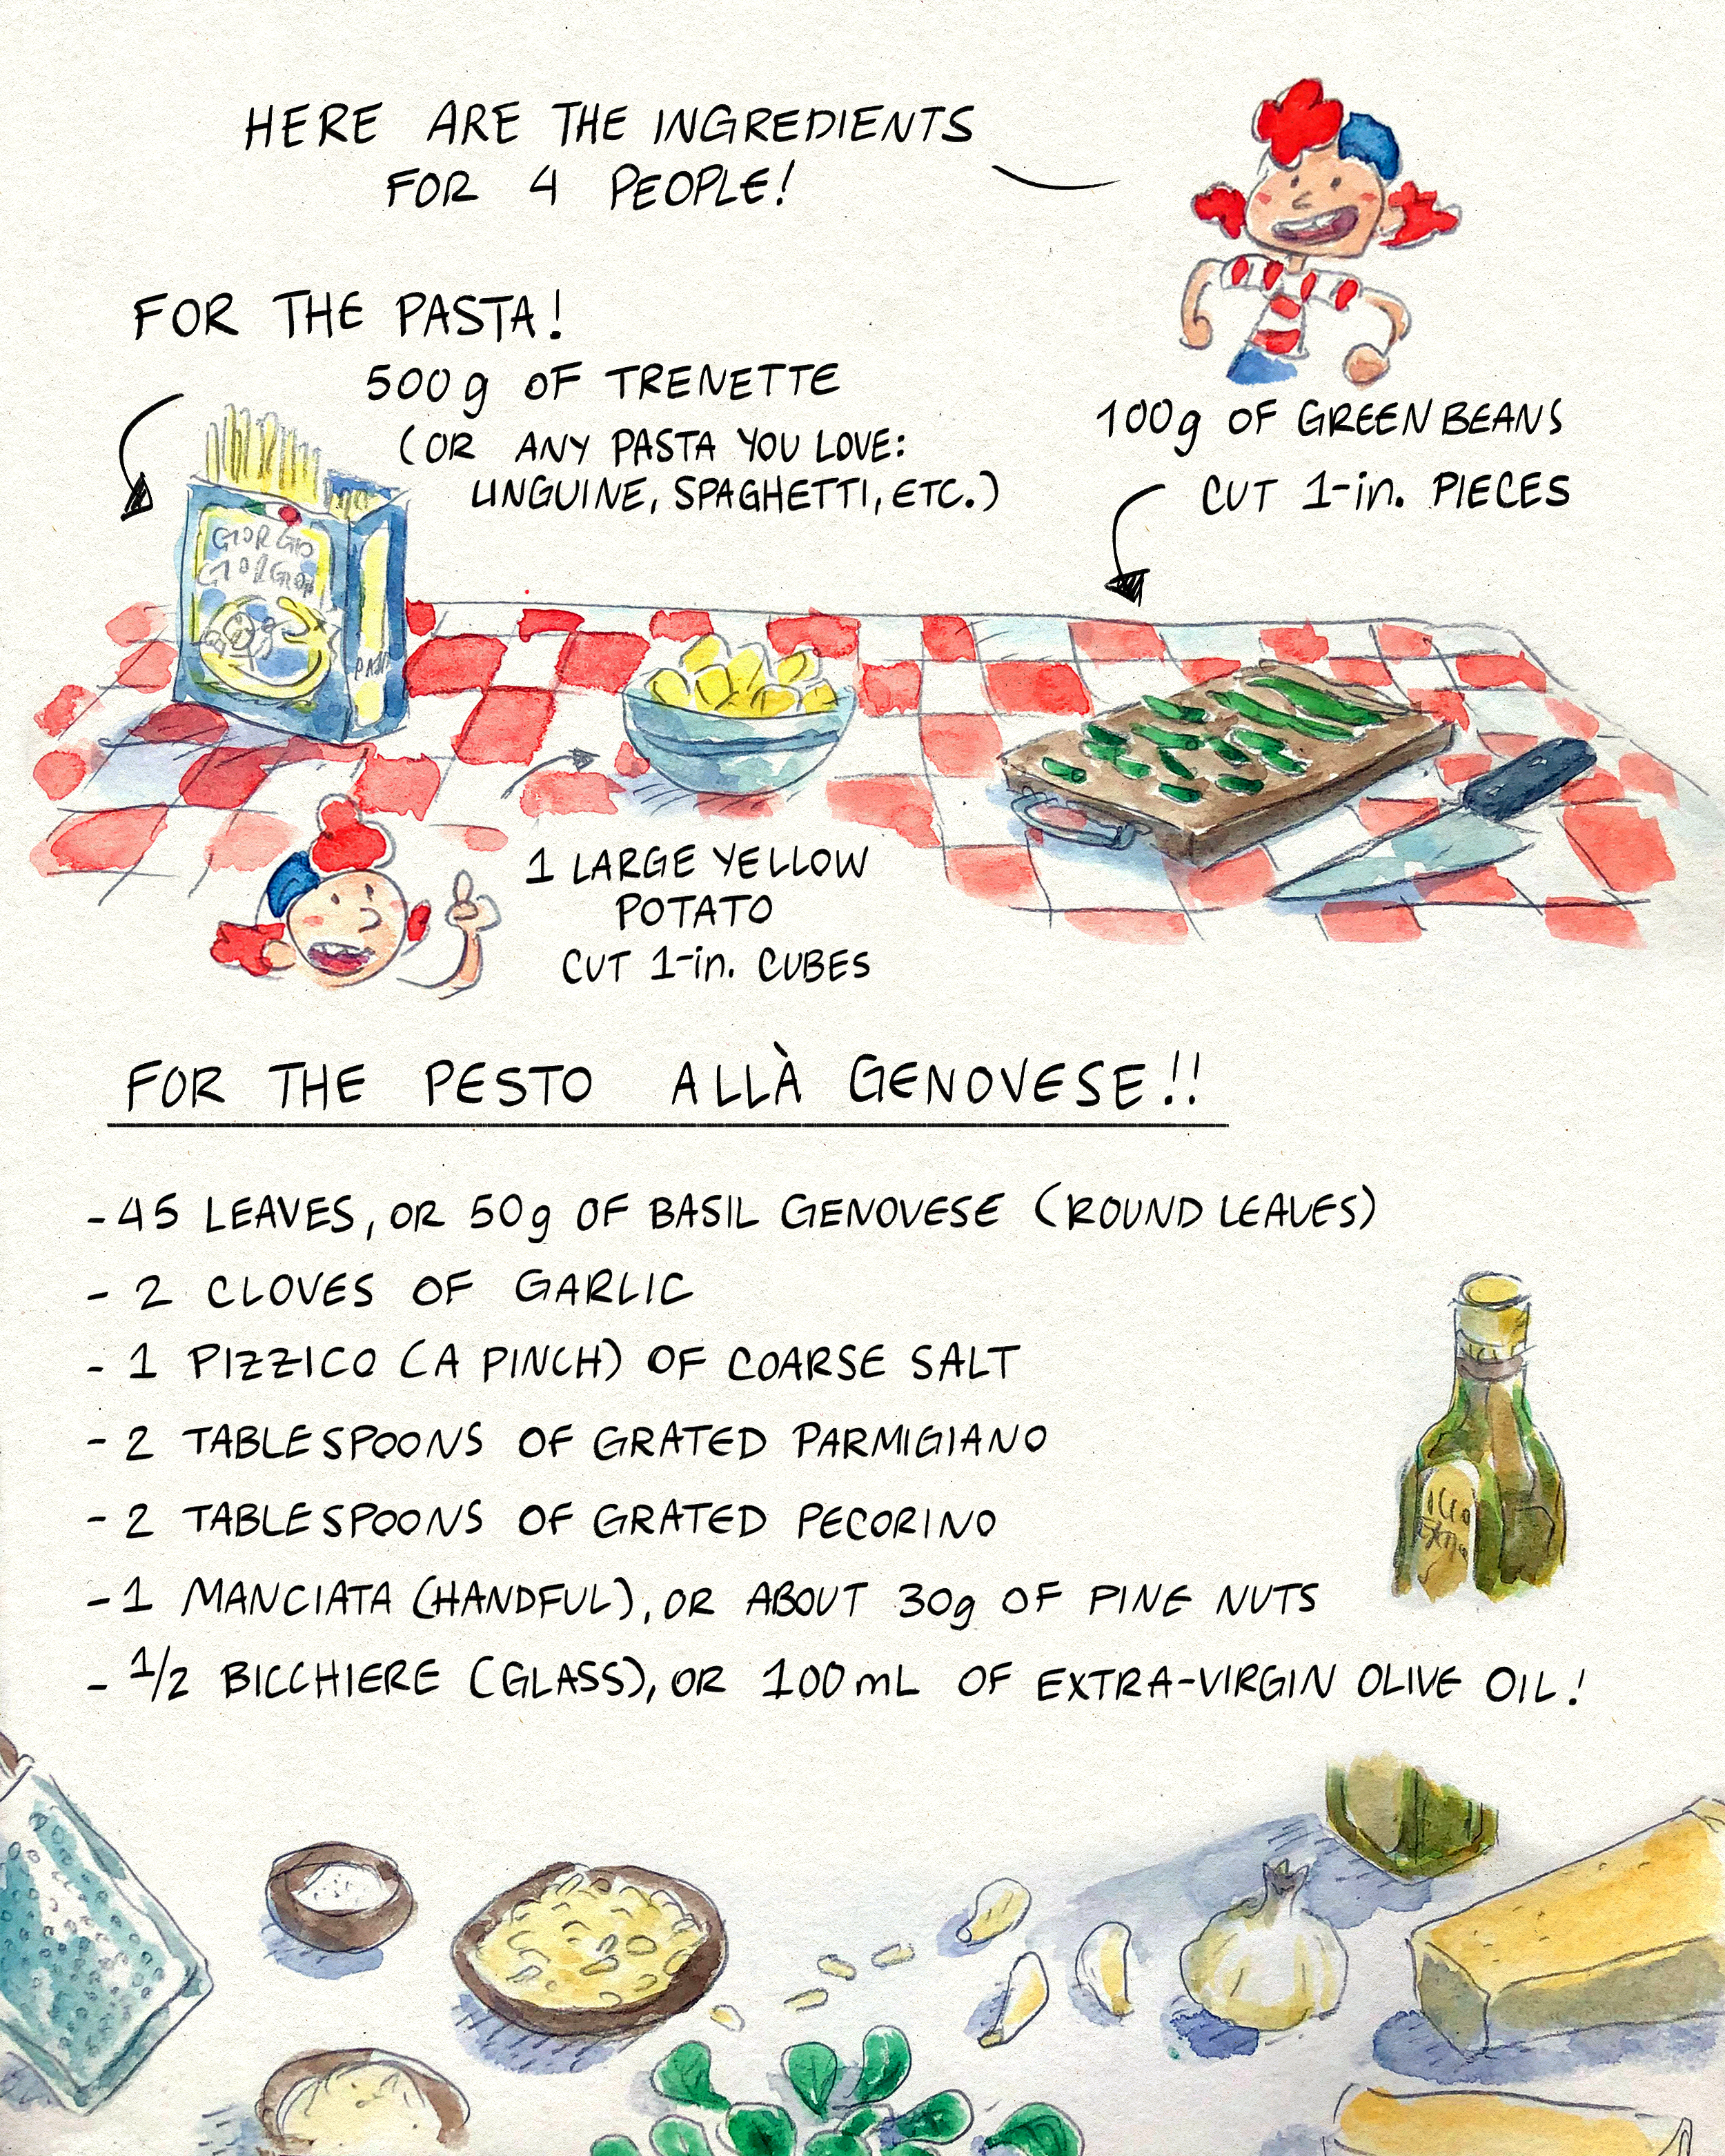 HERE ARE THE INGREDIENTS
FOR 4 PEOPLE!
FOR THE PASTA!
500g OF TRENETTE
(OR ANY PASTA YOU LOVE:
LINGUINE, SPAGHETTI, ETC.)
100g OF GREEN BEANS
CUT 1-in. PIECES
GIORGIO
GIORGION
PASTA
1 LARGE YELLOW
POTATO
CUT 1-in. CUBES
FOR THE PESTO ALLÀ GENOVESE!!
- 45 LEAVES, OR 50g OF BASIL GENOVESE (ROUND LEAVES)
- 2 CLOVES OF GARLIC
- 1 PIZZICO (A PINCH) OF COARSE SALT
- 2 TABLESPOONS OF GRATED PARMIGIANO
- 2 TABLESPOONS OF GRATED PECORINO
- 1 MANCIATA (HANDFUL), OR ABOUT 30g OF PINE NUTS
- 1/2 BICCHIERE (GLASS), OR 100mL OF EXTRA-VIRGIN OLIVE OIL!